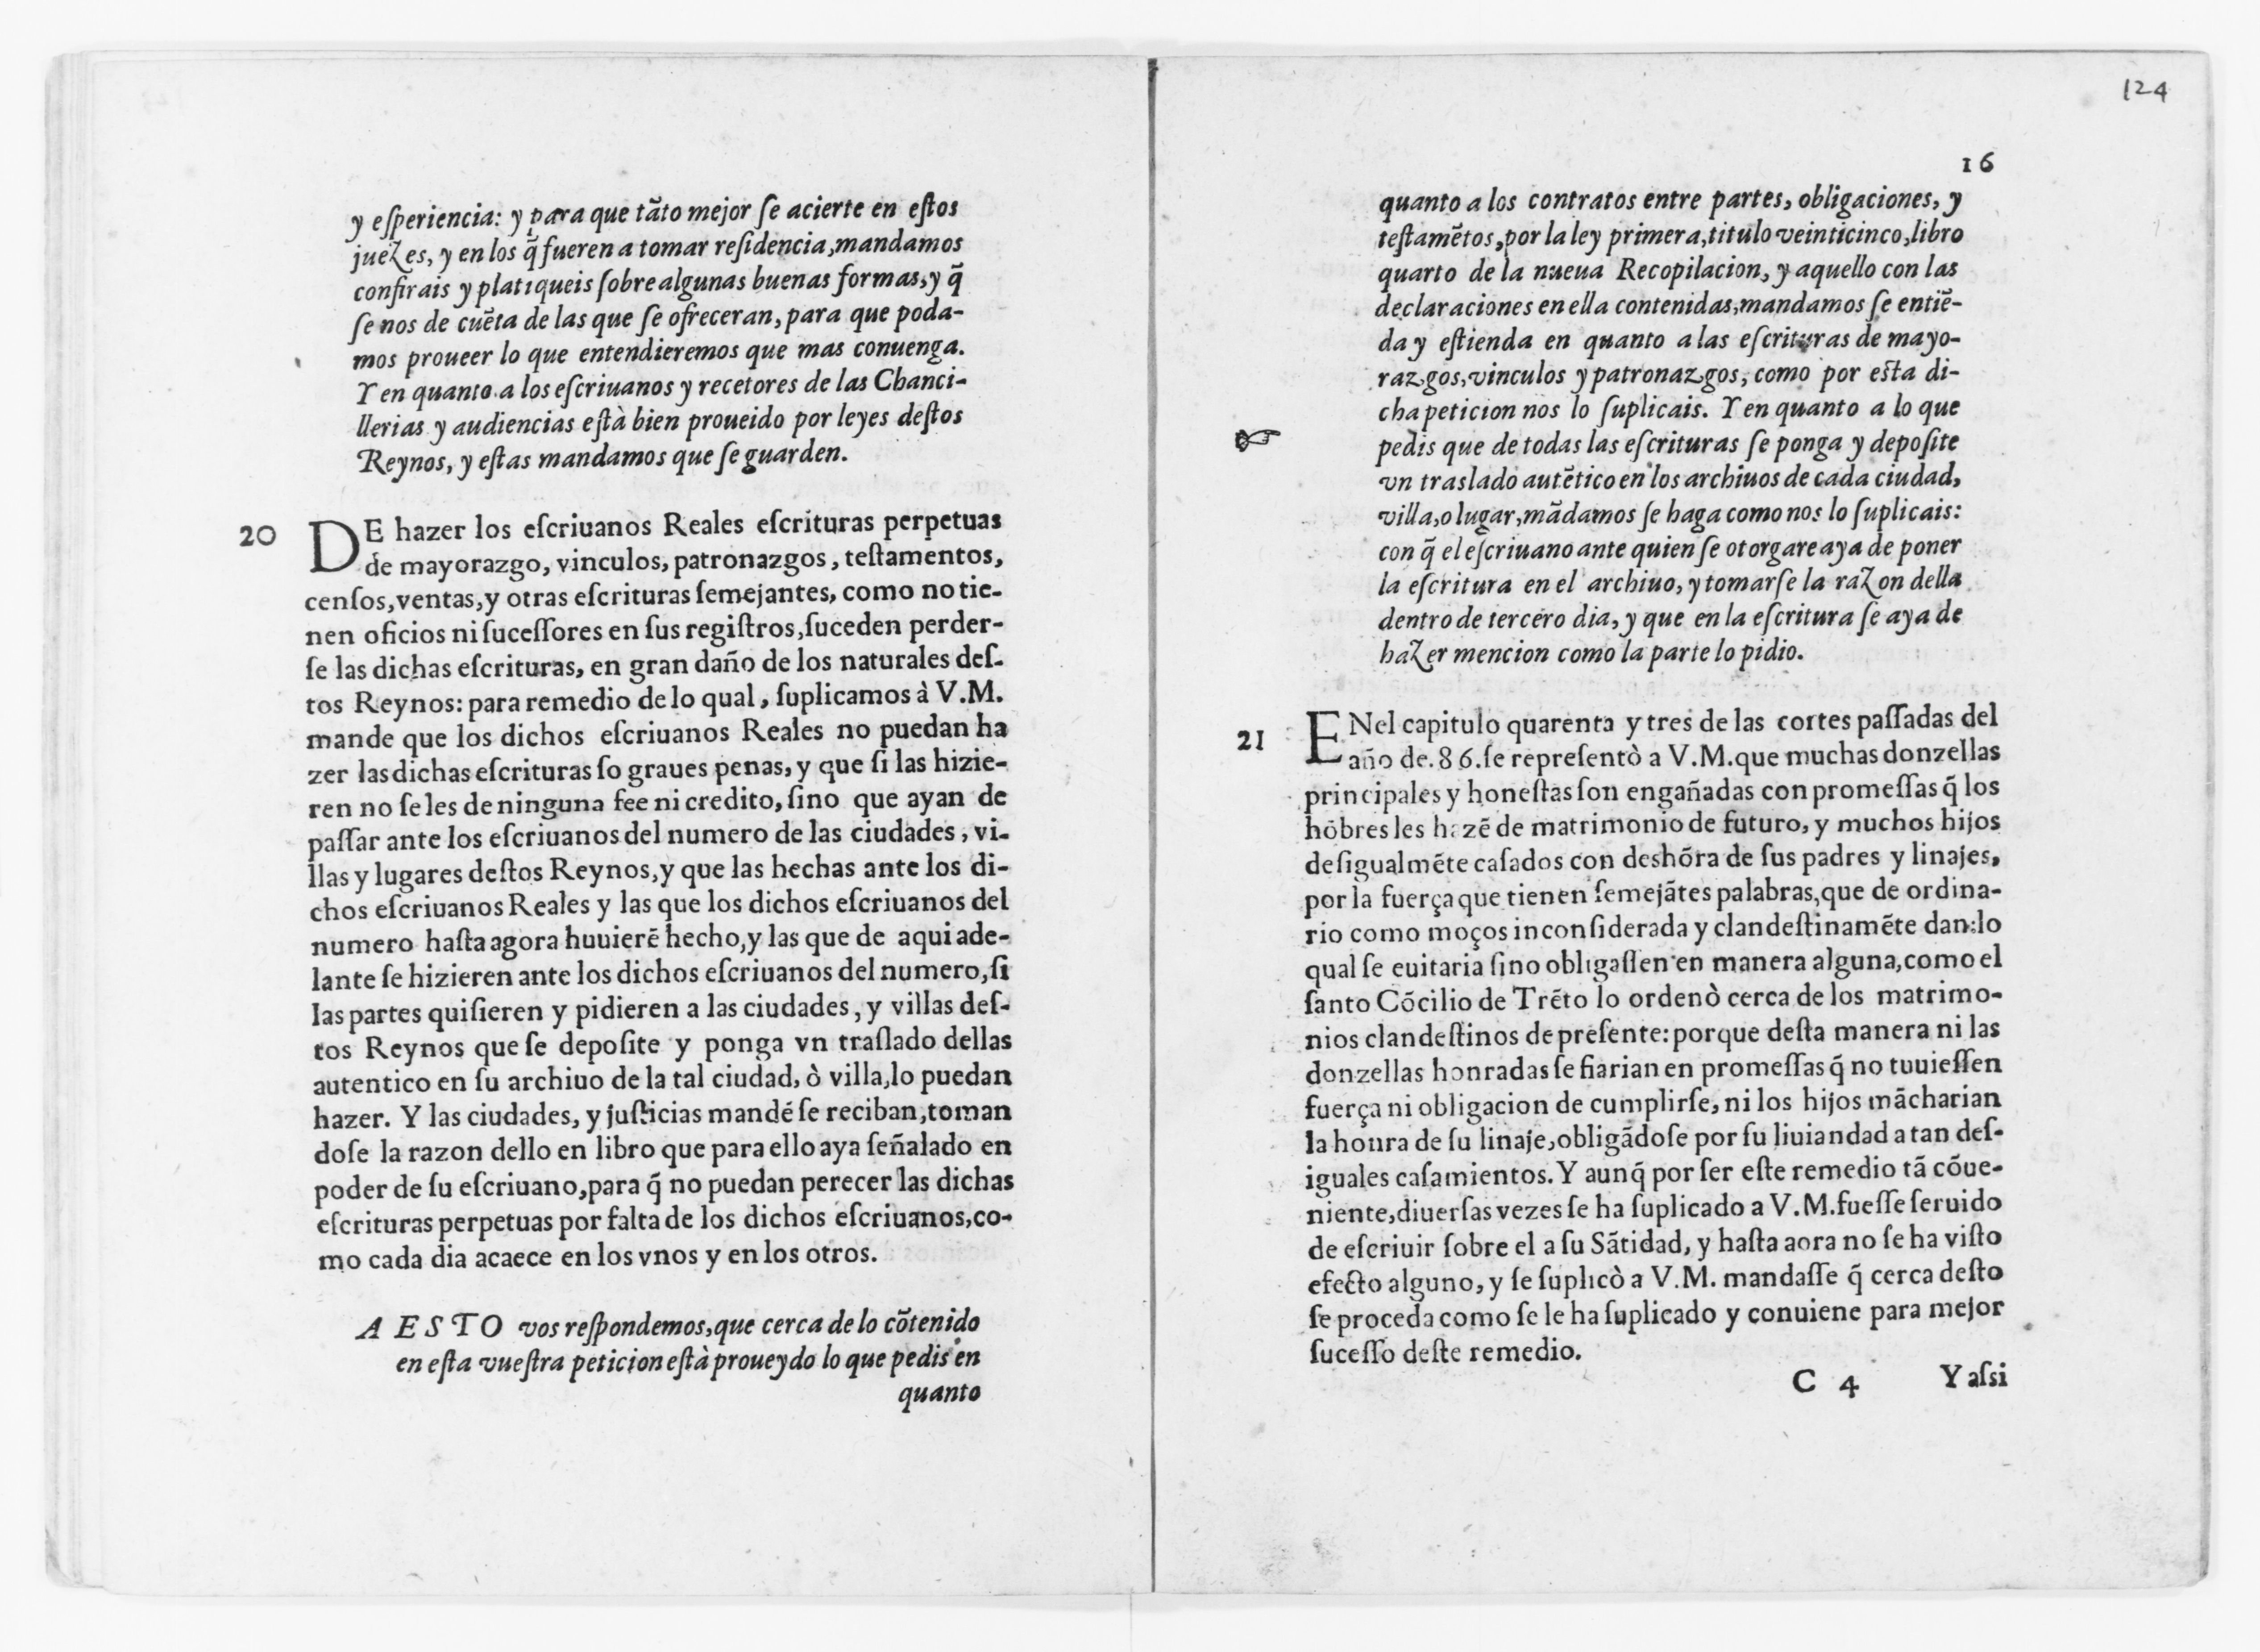 y eſperiencia: y para que tãto mejor ſe acierte en eſtos
juezes, y en los q̃ fueren a tomar reſidencia, mandamos
confirais y platiqueis ſobre algunas buenas formas, y q̃
ſe nos de cuẽta de las que ſe ofreceran, para que poda-
mos proueer lo que entendieremos que mas conuenga.
Y en quanto a los eſcriuanos y recetores de las Chanci-
llerias y audiencias eſtà bien proueido por leyes deſtos
Reynos, y eſtas mandamos que ſe guarden.
20 DE hazer los eſcriuanos Reales eſcrituras perpetuas
de mayorazgo, vinculos, patronazgos, teſtamentos,
cenſos, ventas, y otras eſcrituras ſemejantes, como no tie-
nen oficios ni ſuceſſores en ſus regiſtros, ſuceden perder-
ſe las dichas eſcrituras, en gran daño de los naturales deſ-
tos Reynos: para remedio de lo qual, ſuplicamos à V.M.
mande que los dichos eſcriuanos Reales no puedan ha
zer las dichas eſcrituras ſo graues penas, y que ſi las hizie-
ren no ſe les de ninguna fee ni credito, ſino que ayan de
paſſar ante los eſcriuanos del numero de las ciudades, vi-
llas y lugares deſtos Reynos, y que las hechas ante los di-
chos eſcriuanos Reales y las que los dichos eſcriuanos del
numero haſta agora huuierẽ hecho, y las que de aqui ade-
lante ſe hizieren ante los dichos eſcriuanos del numero, ſi
las partes quiſieren y pidieren a las ciudades, y villas deſ-
tos Reynos que ſe depoſite y ponga vn traſlado dellas
autentico en ſu archiuo de la tal ciudad, ò villa, lo puedan
hazer. Y las ciudades, y juſticias mandé ſe reciban, toman
doſe la razon dello en libro que para ello aya ſeñalado en
poder de ſu eſcriuano, para q̃ no puedan perecer las dichas
eſcrituras perpetuas por falta de los dichos eſcriuanos, co-
mo cada dia acaece en los vnos y en los otros.
A ESTO vos reſpondemos, que cerca de lo cõtenido
en eſta vueſtra peticion eſtà proueydo lo que pedis en
quanto
124
16
quanto a los contratos entre partes, obligaciones, y
teſtamẽtos, por la ley primera, titulo veinticinco, libro
quarto de la nueua Recopilacion, y aquello con las
declaraciones en ella contenidas, mandamos ſe entiẽ-
da y eſtienda en quanto a las eſcrituras de mayo-
razgos, vinculos y patronazgos, como por eſta di-
cha peticion nos lo ſuplicais. Y en quanto a lo que
pedis que de todas las eſcrituras ſe ponga y depoſite
vn traslado autẽtico en los archiuos de cada ciudad,
villa, o lugar, mãdamos ſe haga como nos lo ſuplicais:
con q̃ el eſcriuano ante quien ſe otorgare aya de poner
la eſcritura en el archiuo, y tomarſe la razon della
dentro de tercero dia, y que en la eſcritura ſe aya de
hazer mencion como la parte lo pidio.
21 ENel capitulo quarenta y tres de las cortes paſſadas del
año de. 86. ſe repreſentò a V.M. que muchas donzellas
principales y honeſtas ſon engañadas con promeſſas q̃ los
hõbres les hazẽ de matrimonio de futuro, y muchos hijos
deſigualmẽte caſados con deshõra de ſus padres y linajes,
por la fuerça que tienen ſemejãtes palabras, que de ordina-
rio como moços inconſiderada y clandeſtinamẽte dan: lo
qual ſe euitaria ſino obligaſſen en manera alguna, como el
ſanto Cõcilio de Trẽto lo ordenò cerca de los matrimo-
nios clandeſtinos de preſente: porque deſta manera ni las
donzellas honradas ſe fiarian en promeſſas q̃ no tuuieſſen
fuerça ni obligacion de cumplirſe, ni los hijos mãcharian
la honra de ſu linaje, obligãdoſe por ſu liuiandad a tan deſ-
iguales caſamientos. Y aunq̃ por ſer eſte remedio tã cõue-
niente, diuerſas vezes ſe ha ſuplicado a V.M. fueſſe ſeruido
de eſcriuir ſobre el a ſu Sãtidad, y haſta aora no ſe ha viſto
efecto alguno, y ſe ſuplicò a V.M. mandaſſe q̃ cerca deſto
ſe proceda como ſe le ha ſuplicado y conuiene para mejor
ſuceſſo deſte remedio.
C 4 Y aſsi